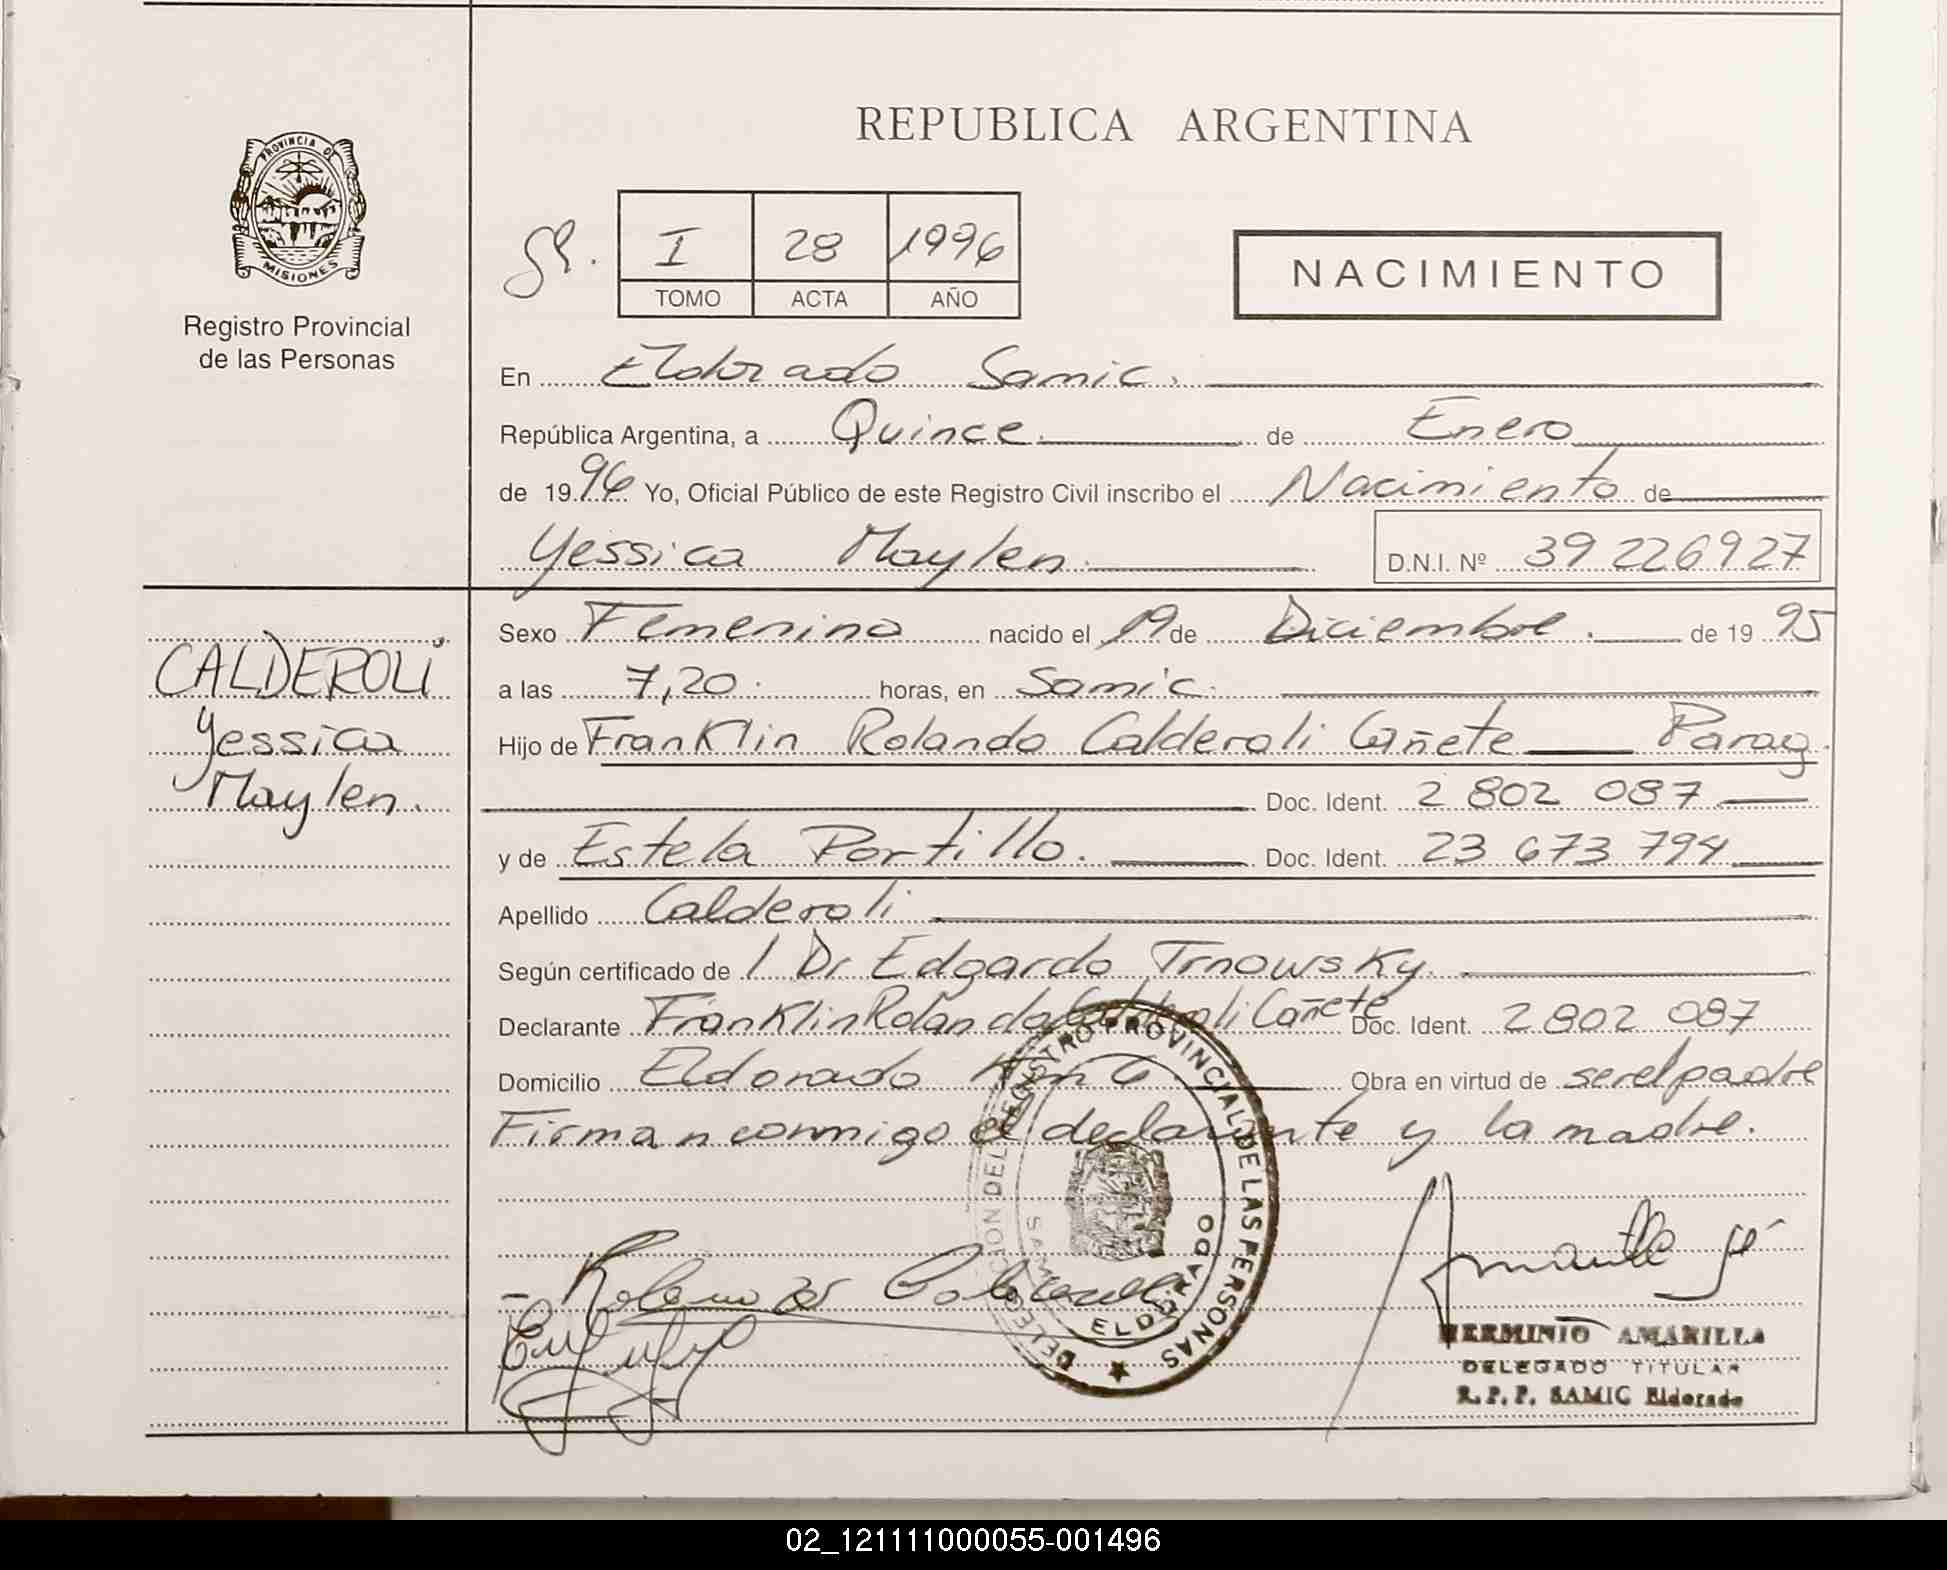 REPUBLICA ARGENTINA
PROVINCIA DE
MISIONES
Registro Provincial
de las Personas
I 28 1996
TOMO ACTA AÑO
NACIMIENTO
En Eldorado Samic.
República Argentina, a Quince de Enero
de 1996 Yo, Oficial Público de este Registro Civil inscribo el Nacimiento de
Yessica Maylen D.N.I. Nº 39 226927
CALDEROLI
Yessica
Maylen.
Sexo Femenino nacido el 19 de Diciembre. de 1995
a las 7,20. horas, en Samic.
Hijo de Franklin Rolando Calderoli Cañete Parag.
Doc. Ident. 2 802 087
y de Estela Portillo. Doc. Ident. 23 673 794
Apellido Calderoli
Según certificado de 1 Dr Edgardo Trnowsky.
Declarante Franklin Rolando Calderoli Cañete Doc. Ident. 2802 087
Domicilio Eldorado Km 6 Obra en virtud de ser el padre
Firman conmigo el declarante y la madre.
DELEGACION DEL REGISTRO PROVINCIAL DE LAS PERSONAS
SAMIC ELDORADO
HERMINIO AMARILLA
DELEGADO TITULAR
R.P.P. SAMIC Eldorado
02_121111000055-001496